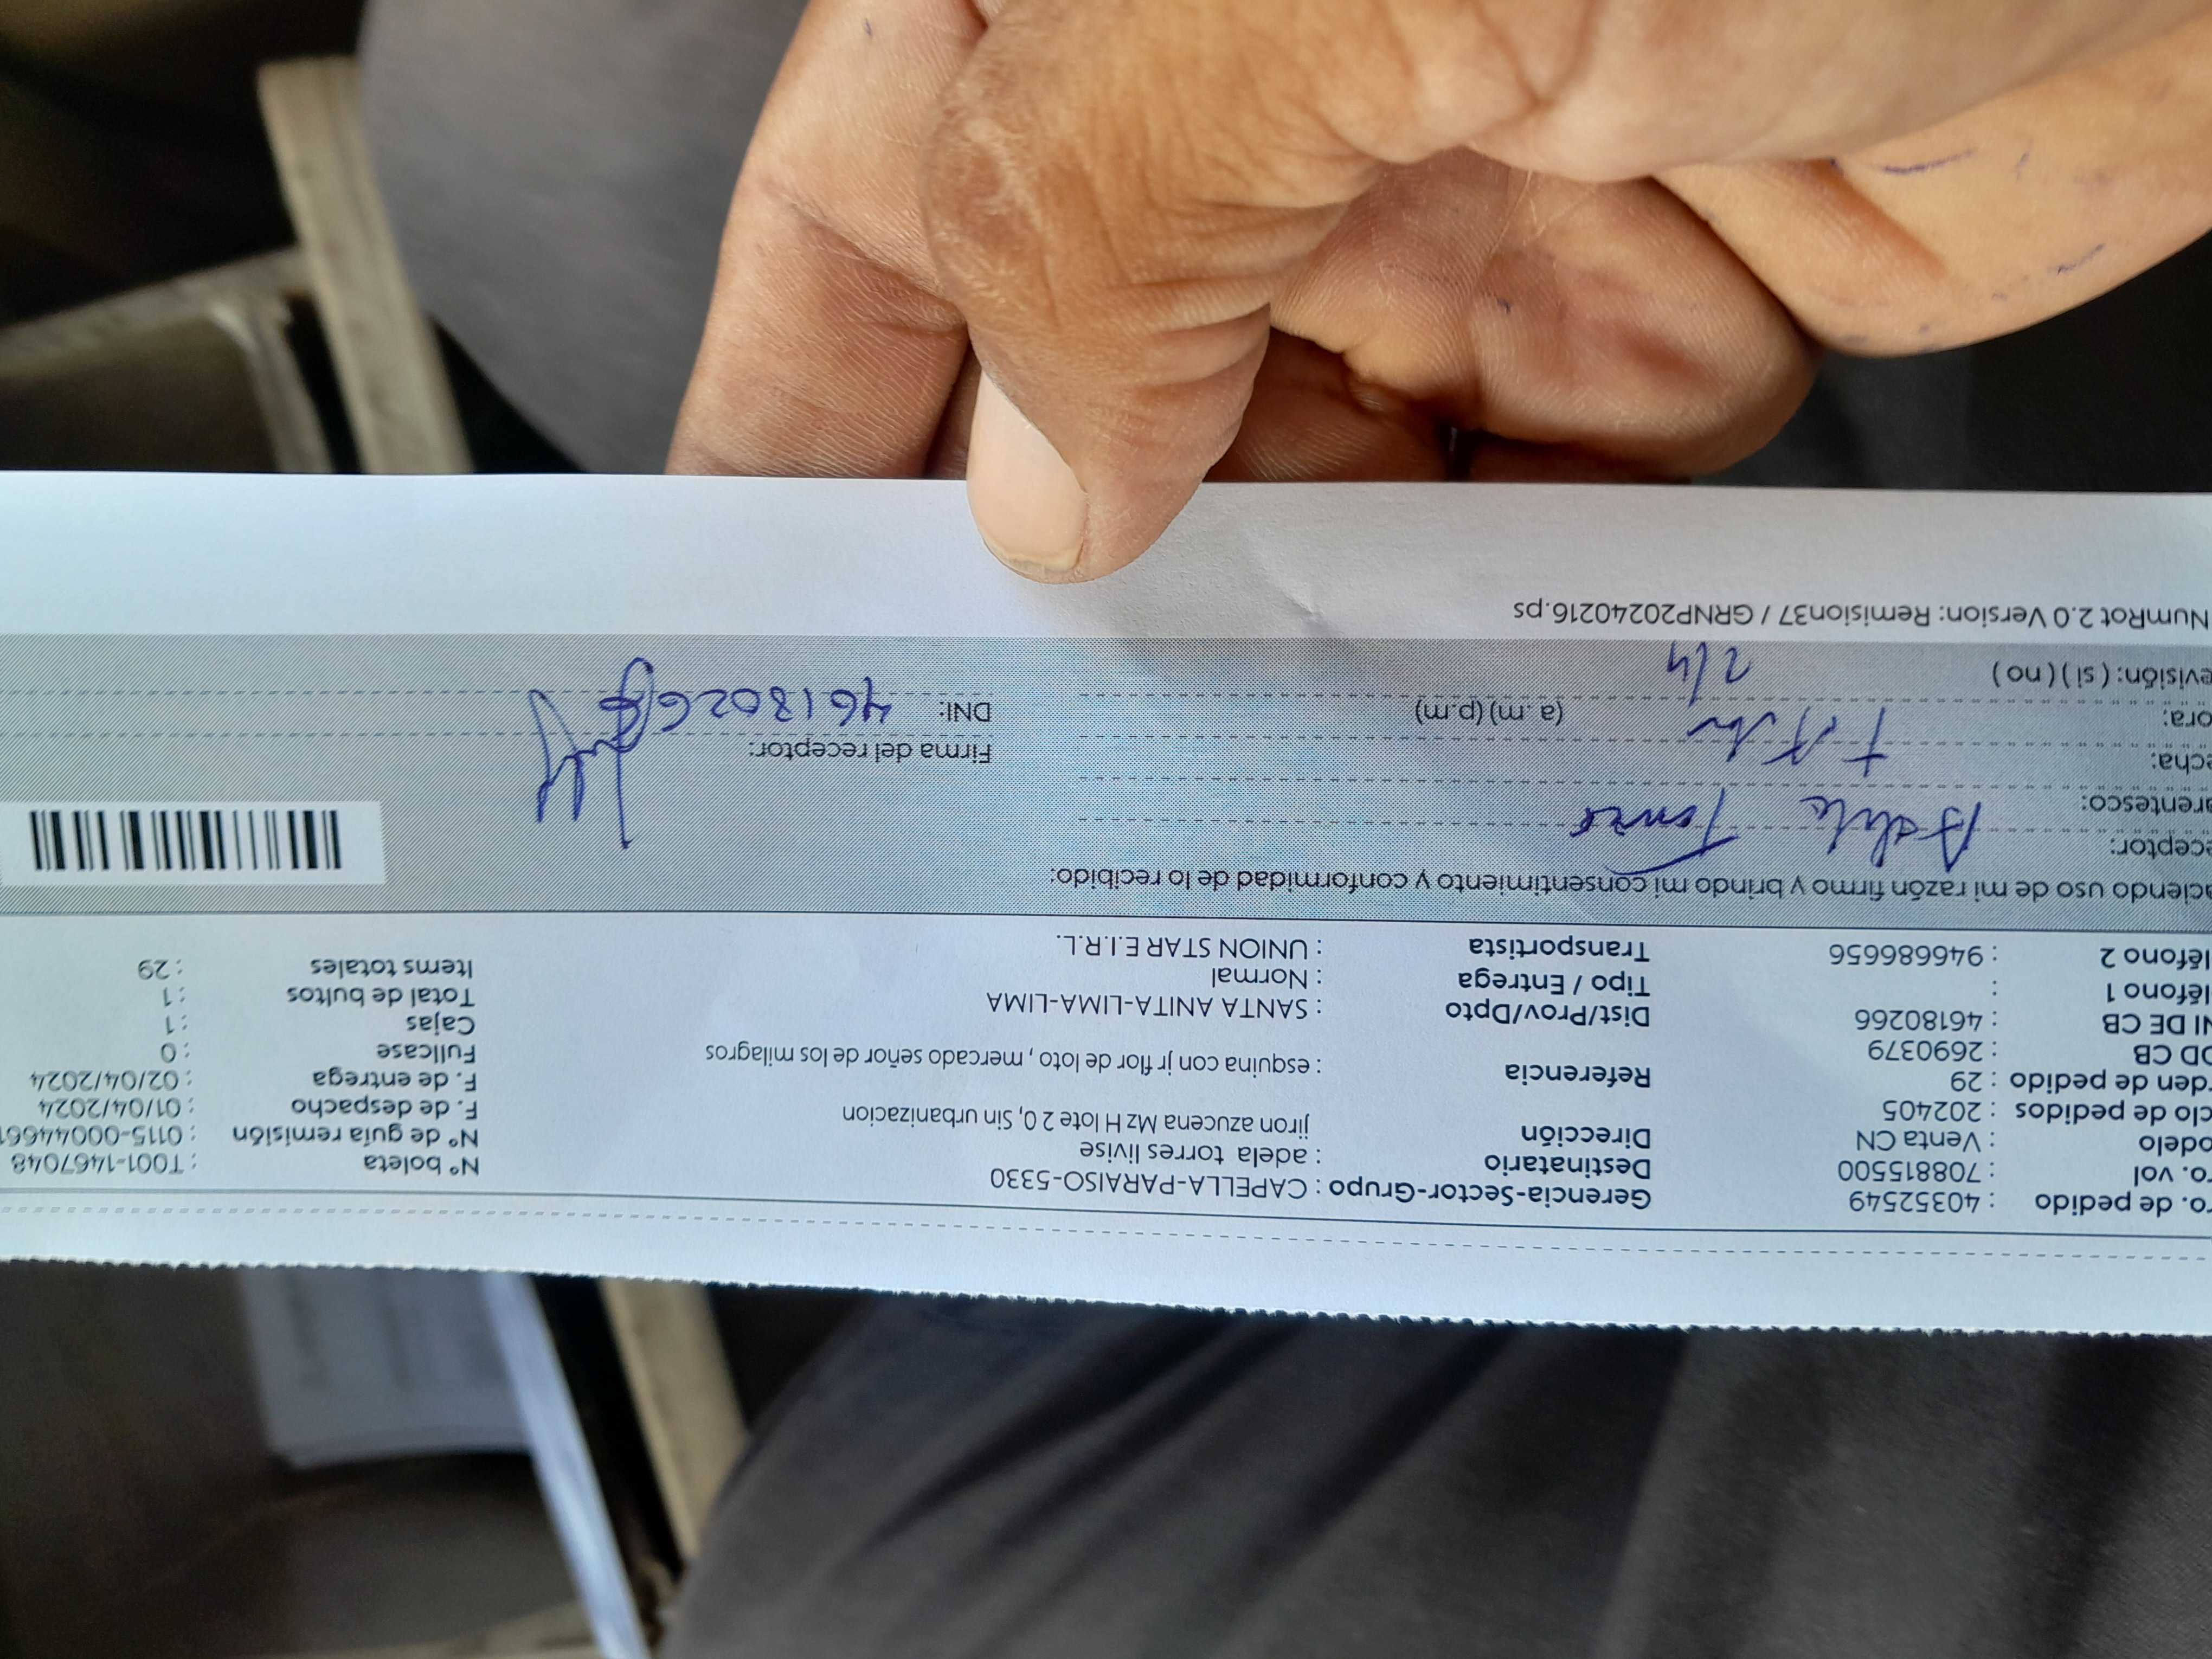 ro. de pedido : 40352549 Gerencia-Sector-Grupo : CAPELLA-PARAISO-5330 N° boleta : T001-1467048
ro. vol : 708815500 Destinatario : adela torres livise N° de guía remisión : 0115-00044661
odelo : Venta CN Dirección jiron azucena Mz H lote 2 0, Sin urbanizacion F. de despacho : 01/04/2024
clo de pedidos : 202405 F. de entrega : 02/04/2024
rden de pedido : 29 Referencia : esquina con jr flor de loto , mercado señor de los milagros Fullcase : 0
OD CB : 2690379 Cajas : 1
NI DE CB : 46180266 Dist/Prov/Dpto : SANTA ANITA-LIMA-LIMA Total de bultos : 1
léfono 1 : Tipo / Entrega : Normal Items totales : 29
léfono 2 : 946686656 Transportista : UNION STAR E.I.R.L.
aciendo uso de mi razón firmo y brindo mi consentimiento y conformidad de lo recibido:
ceptor: Adela Torres
arentesco:
echa: Firma del receptor:
ora: (a.m) (p.m) DNI: 4618026
evisión: ( si ) ( no ) 2/4
NumRot 2.0 Version: Remision37 / GRNP20240216.ps